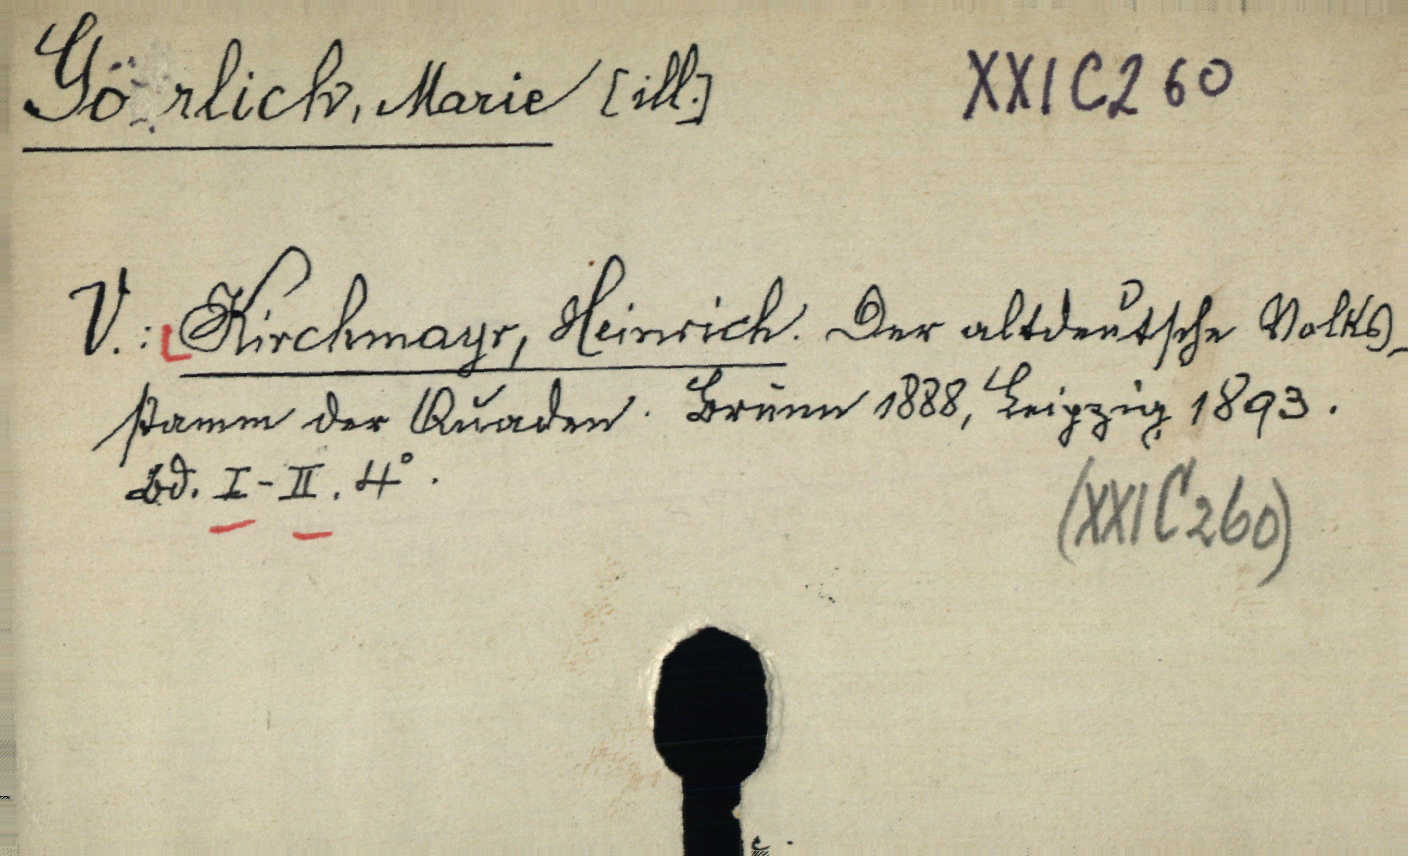 Görlich, Marie [ill.] XXI C 260
V.: Kirchmayr, Heinrich. Der altdeutsche Volks-
stamm der Quaden. Brünn 1888, Leipzig 1893.
Bd. I-II. 4°.
(XXI C 260)